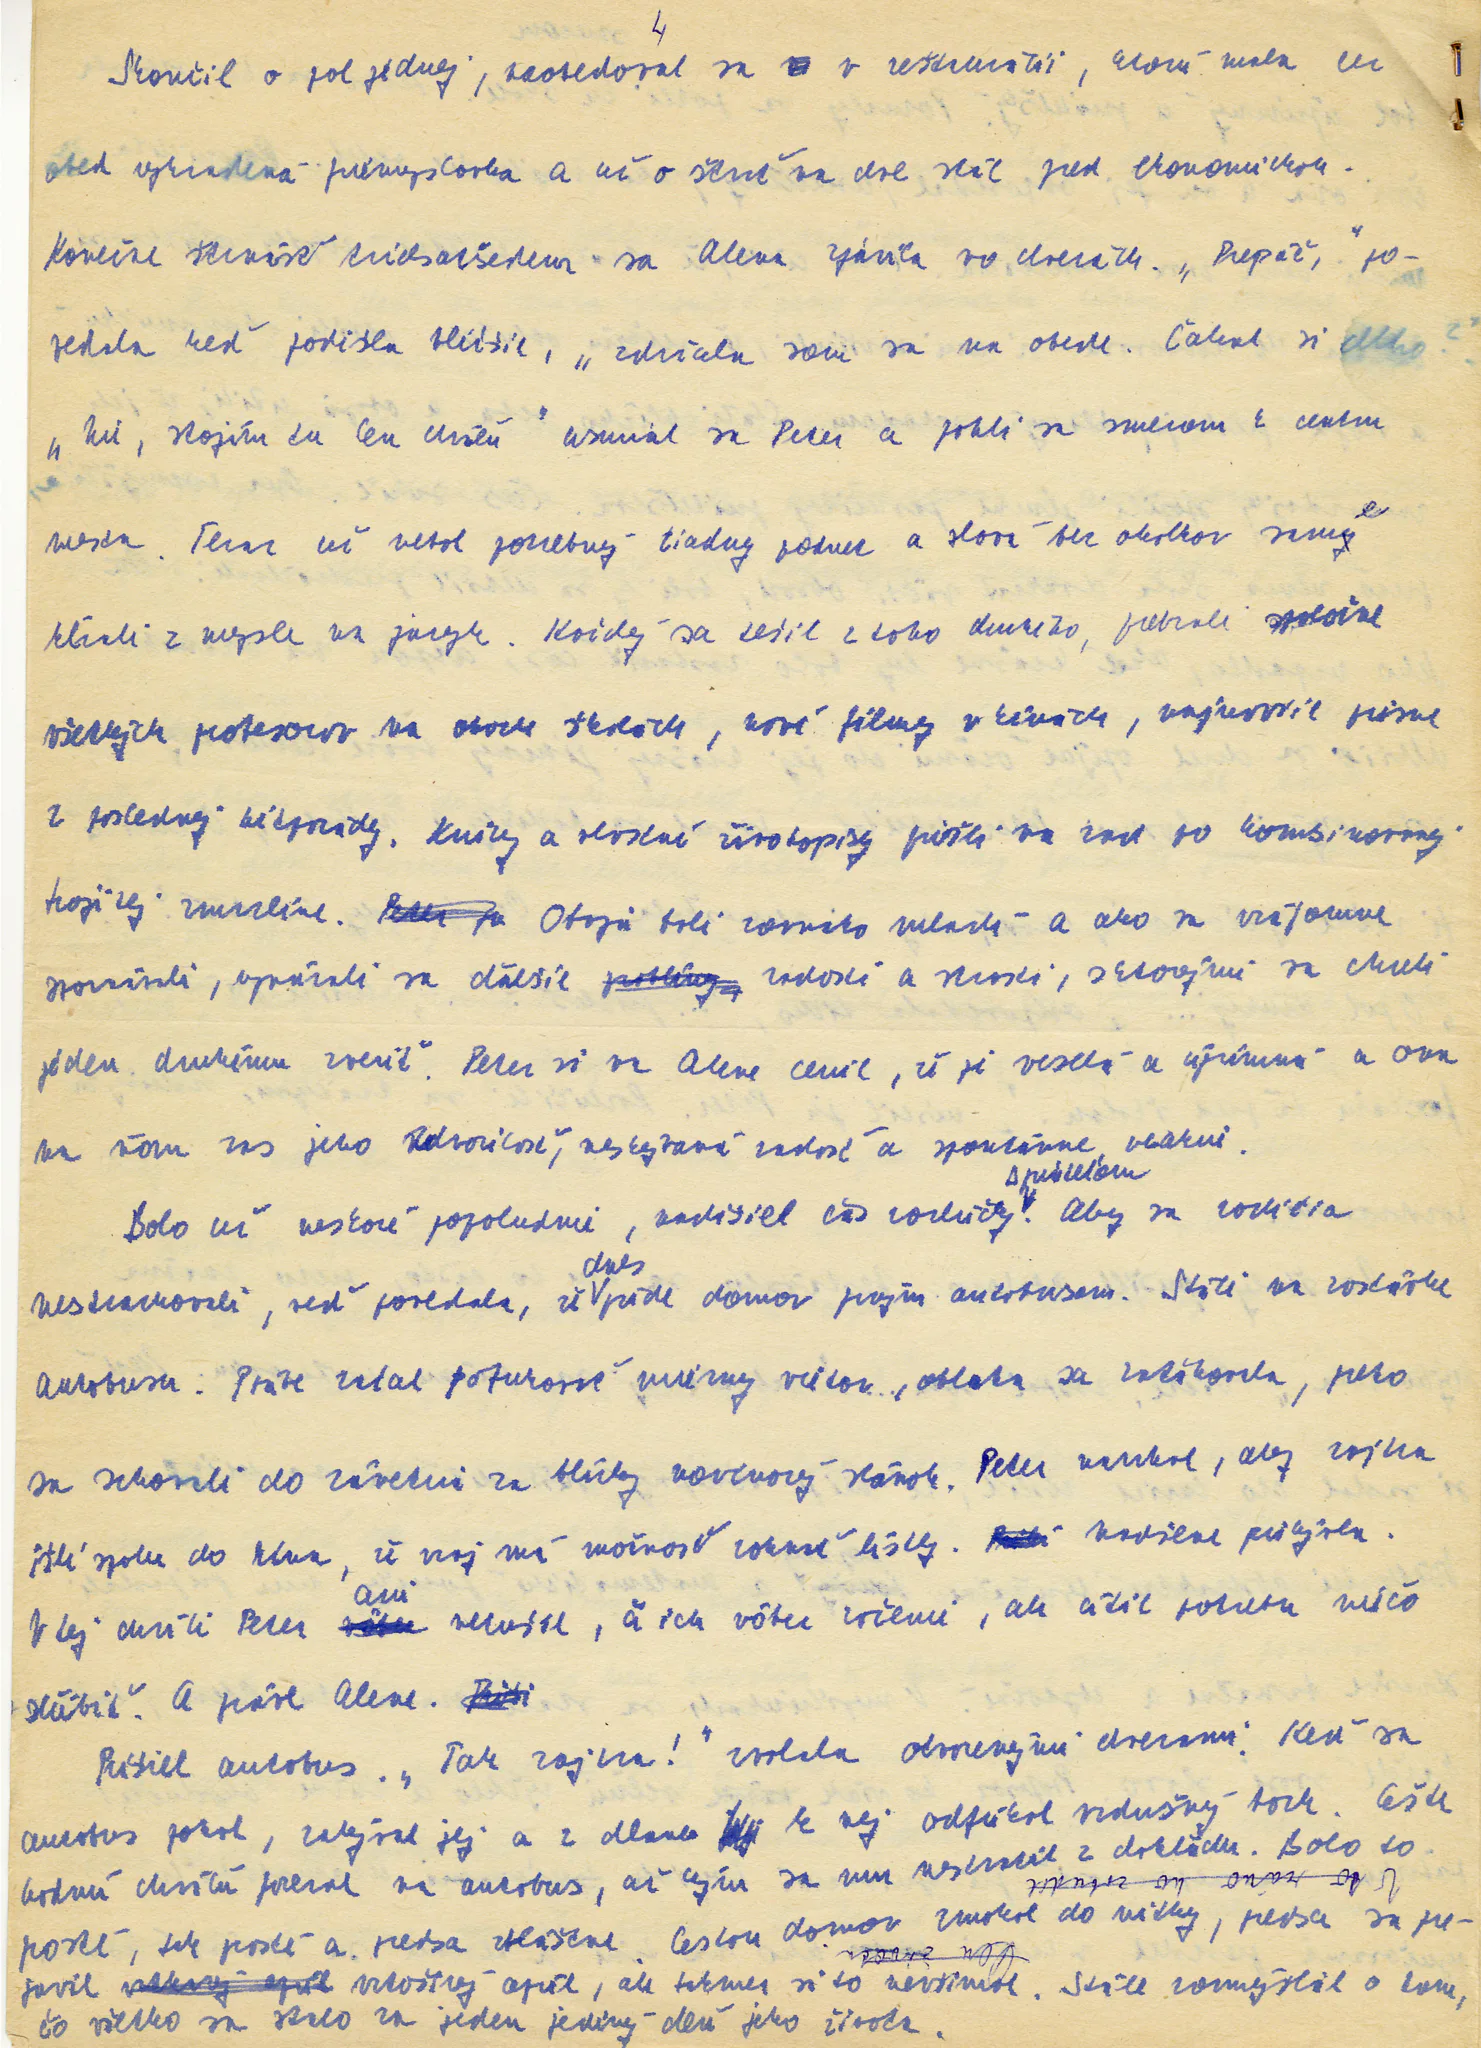 4
Skončil o pol jednej, naobedoval sa v reštaurácii, ktorú mala na
obed vyhradená priemyslovka a už o štvrť na dve stál pred ekonomickou.
Konečne štrnásť tridsaťsedem sa Alena zjavila vo dverách. „Prepáč," po-
vedala keď podišla bližšie, „zdržala som sa na obede. Čakal si dlho?"
„Nie, stojím tu len chvíľu" usmial sa Peter a pohli sa smerom k centru
mesta. Teraz už nebol potrebný žiadny podnet a slová bez okolkov samé
kĺzali z mysle na jazyk. Každý sa tešil z toho druhého, prebrali spoločne
všetkých profesorov na oboch školách, nové filmy v kinách, najnovšie piesne
z poslednej hitparády. Knižky a vlastné životopisy prišli na rad po kombinovanej
trojitej zmrzline. Peter sa Obaja boli rovnako mladí a ako sa vzájomne
spoznávali, vynárali sa ďalšie problémy, radosti a strasti, s ktorými sa chceli
jeden druhému zveriť. Peter si na Alene cenil, že je veselá a úprimná a ona
na ňom zas jeho zdvorilosť, neskrývanú radosť a spontánne
Bolo už neskoré popoludnie, nadišiel čas rozlúčky s priateľom. Aby sa rodičia
nestrachovali, veď povedala, že dnes príde domov prvým autobusom. Stáli na zastávke
autobusu. Práve začal pofukovať mierny vietor, obloha sa zaťahovala, preto
sa schovali do závetria za blízky novinový stánok. Peter navrhol, aby zajtra
išli spolu do kina, že vraj má možnosť zohnať lístky. Nadšene prijala.
V tej chvíli Peter vôbec ani netušil, či ich vôbec zoženie, ale cítil potrebu niečo
sľúbiť. A práve Alene. Prišiel
Prišiel autobus. „Tak zajtra!" zvolala otvorenými dverami. Keď sa
autobus pohol, zakýval jej a z dlane k nej odfúkol vzdušný bozk. Ešte
hodnú chvíľu pozeral na autobus, až kým sa mu nestratil z dohľadu. Bolo to
V to ráno ho zobudil
prosté, tak prosté a predsa zvláštne. Cestou domov zmokol do nitky, predsa sa pre-
javil vrtošivý apríl, ale takmer si to nevšimol. Stále rozmýšľal o tom,
čo všetko sa stalo za jeden jediný deň jeho života.